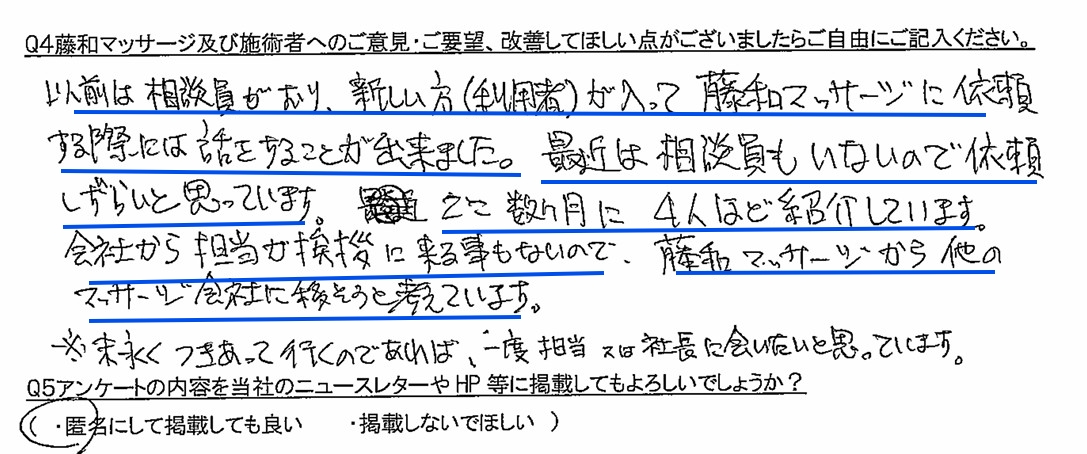 Q4藤和マッサージ及び施術者へのご意見・ご要望、改善してほしい点がございましたらご自由にご記入ください。
以前は相談員がおり、新しい方(利用者)が入って藤和マッサージに依頼
する際には話をすることが出来ました。最近は相談員もいないので依頼
しずらいと思っています。ここ数ヶ月に4人ほど紹介しています。
会社から担当が挨拶に来る事もないので、藤和マッサージから他の
マッサージ会社に移そうと考えています。
※末永くつきあって行くのであれば、一度担当又は社長に会いたいと思っています。
Q5アンケートの内容を当社のニュースレターやHP等に掲載してもよろしいでしょうか?
( ・匿名にして掲載しても良い ・掲載しないでほしい )